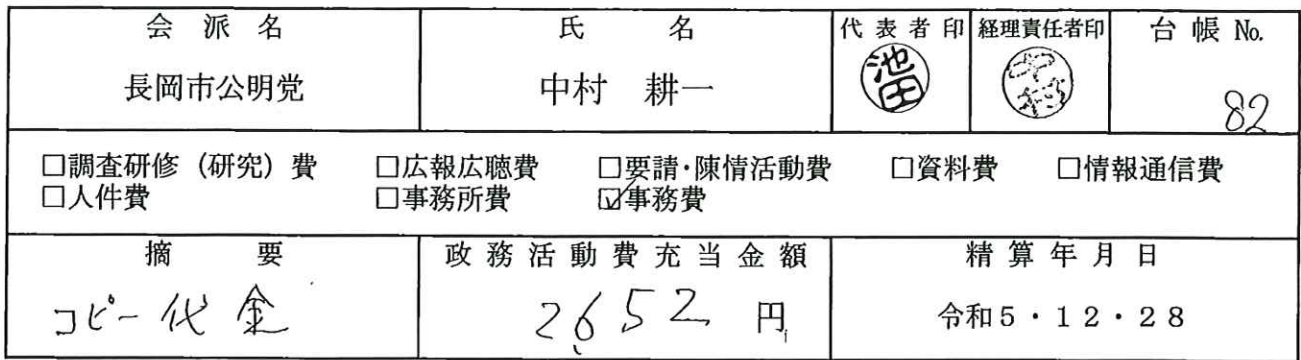 会派名 氏名 代表者印 経理責任者印 台帳No.
長岡市公明党 中村 耕一 池田 中村 82
□調査研修（研究）費 □広報広聴費 □要請・陳情活動費 □資料費 □情報通信費
□人件費 □事務所費 ☑事務費
摘要 政務活動費充当金額 精算年月日
コピー代金 2652 円 令和5・12・28